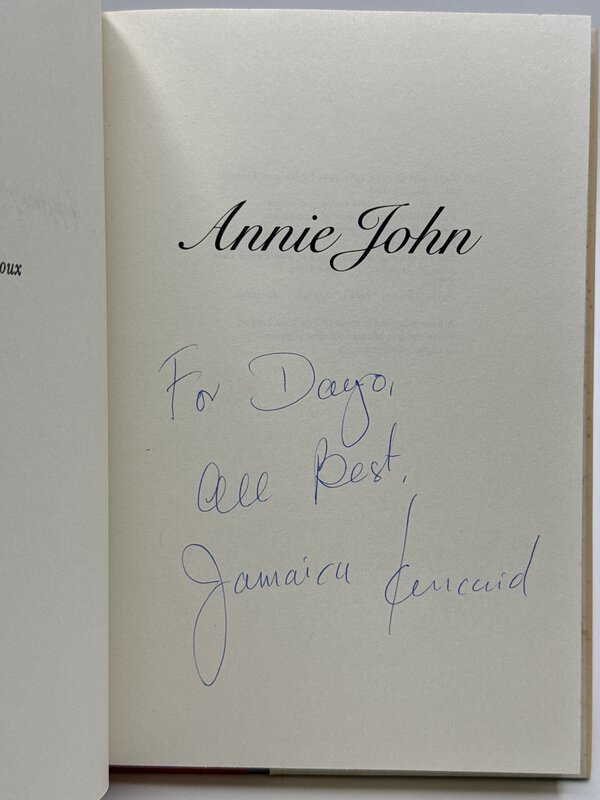 oux
Annie John
For Dayo,
All Best,
Jamaica Kincaid